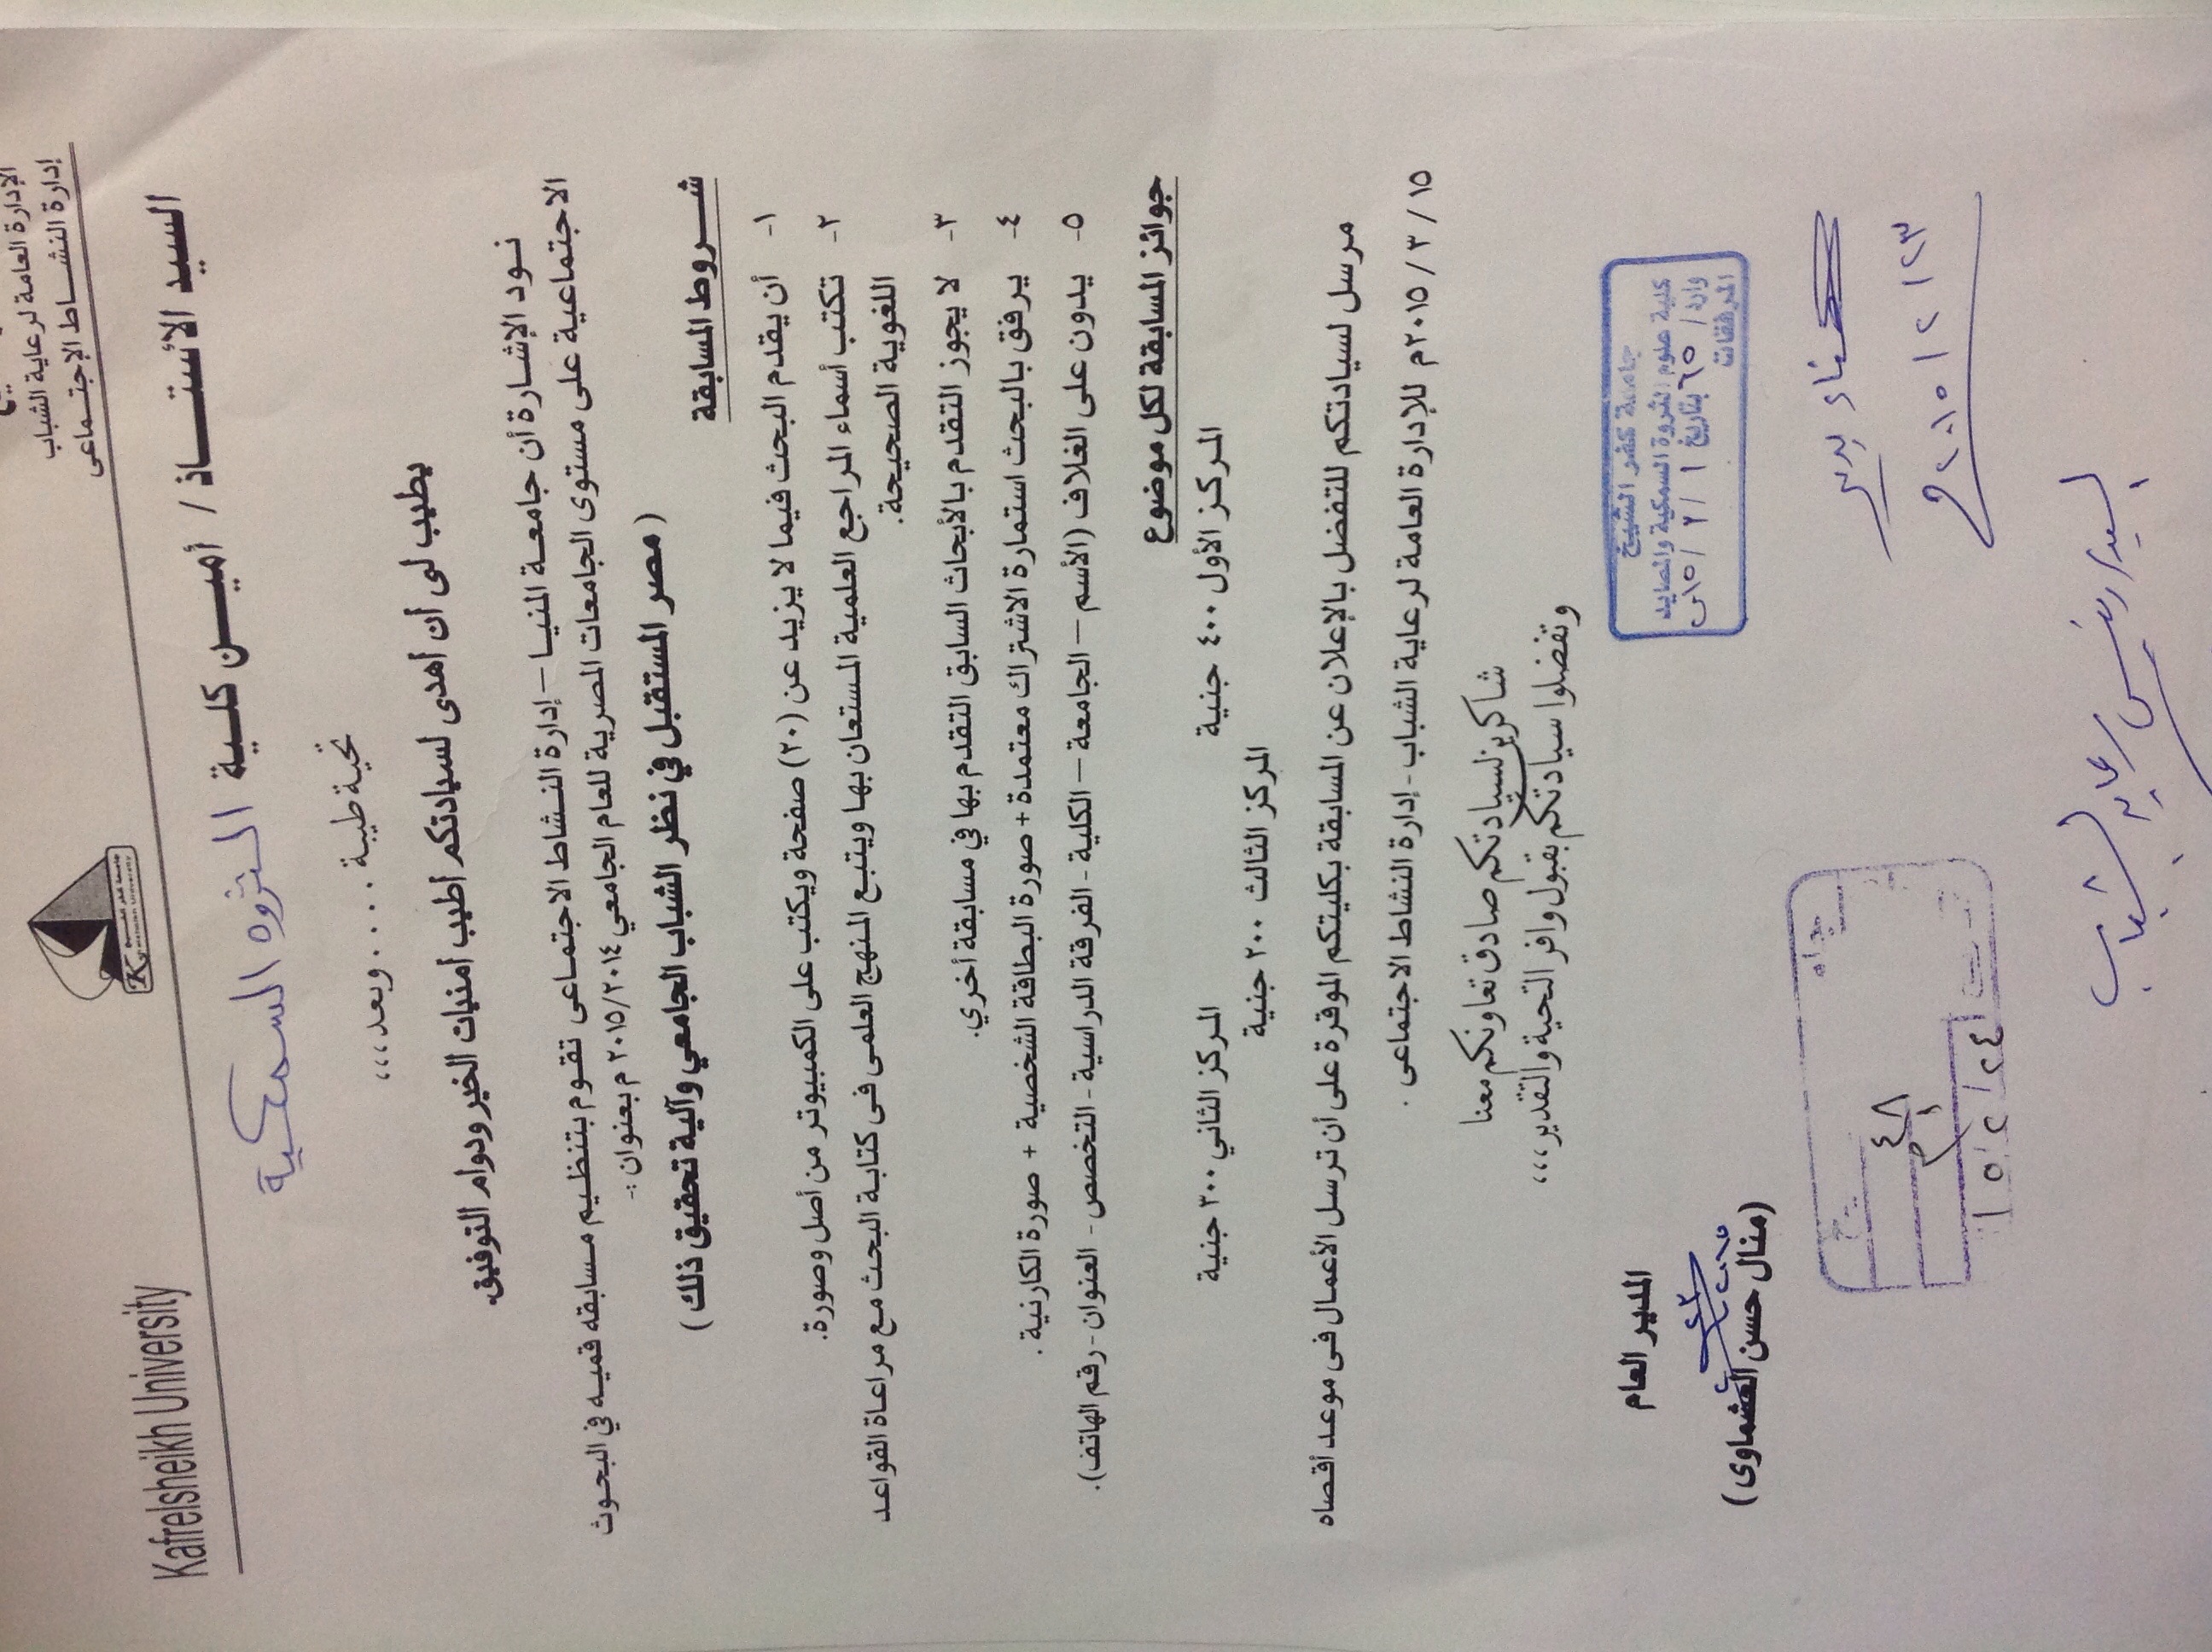 الإدارة العامة لرعاية الشباب
إدارة النشاط الإجتماعى
Kafrelsheikh University
السيد الأستاذ / أمين كلية الثروه السمكية
تحية طيبة .... وبعد ،،،
يطيب لى أن أهدى لسيادتكم أطيب أمنيات الخير ودوام التوفيق.
نود الإشارة أن جامعة المنيا – إدارة النشاط الاجتماعى تقوم بتنظيم مسابقه قميه في البحوث
الاجتماعية على مستوى الجامعات المصرية للعام الجامعي ٢٠١٥/٢٠١٤م بعنوان :-
( مصر المستقبل في نظر الشباب الجامعي وآلية تحقيق ذلك )
شروط المسابقة
١- أن يقدم البحث فيما لا يزيد عن (٢٠) صفحة ويكتب على الكمبيوتر من أصل وصورة.
٢- تكتب أسماء المراجع العلمية المستعان بها ويتبع المنهج العلمى فى كتابة البحث مع مراعاة القواعد
اللغوية الصحيحة.
٣- لا يجوز التقدم بالأبحاث السابق التقدم بها في مسابقة أخري.
٤- يرفق بالبحث استمارة الاشتراك معتمدة + صورة البطاقة الشخصية + صورة الكارنية .
٥- يدون على الغلاف (الأسم – الجامعة – الكلية - الفرقة الدراسية - التخصص - العنوان - رقم الهاتف).
جوائز المسابقة لكل موضوع
المركز الأول ٤٠٠ جنية المركز الثاني ٣٠٠ جنية
المركز الثالث ٢٠٠ جنية
مرسل لسيادتكم للتفضل بالإعلان عن المسابقة بكليتكم الموقرة على أن ترسل الأعمال فى موعد أقصاه
١٥ / ٣ / ٢٠١٥م للإدارة العامة لرعاية الشباب - إدارة النشاط الاجتماعى .
شاكرين لسيادتكم صادق تعاونكم معنا
وتفضلوا سيادتكم بقبول وافر التحية والتقدير،،،
المدير العام
(منال حسن العشماوى)
جامعة كفر الشيخ
كلية علوم الثروة السمكية والمصايد
وارد / ٦٥ بتاريخ ١ / ٢ / ٢٠١٥
المرفقات
٢٠١٥ / ٢ / ٢٣
٤٨
السيد / رئيس رعايه الشباب